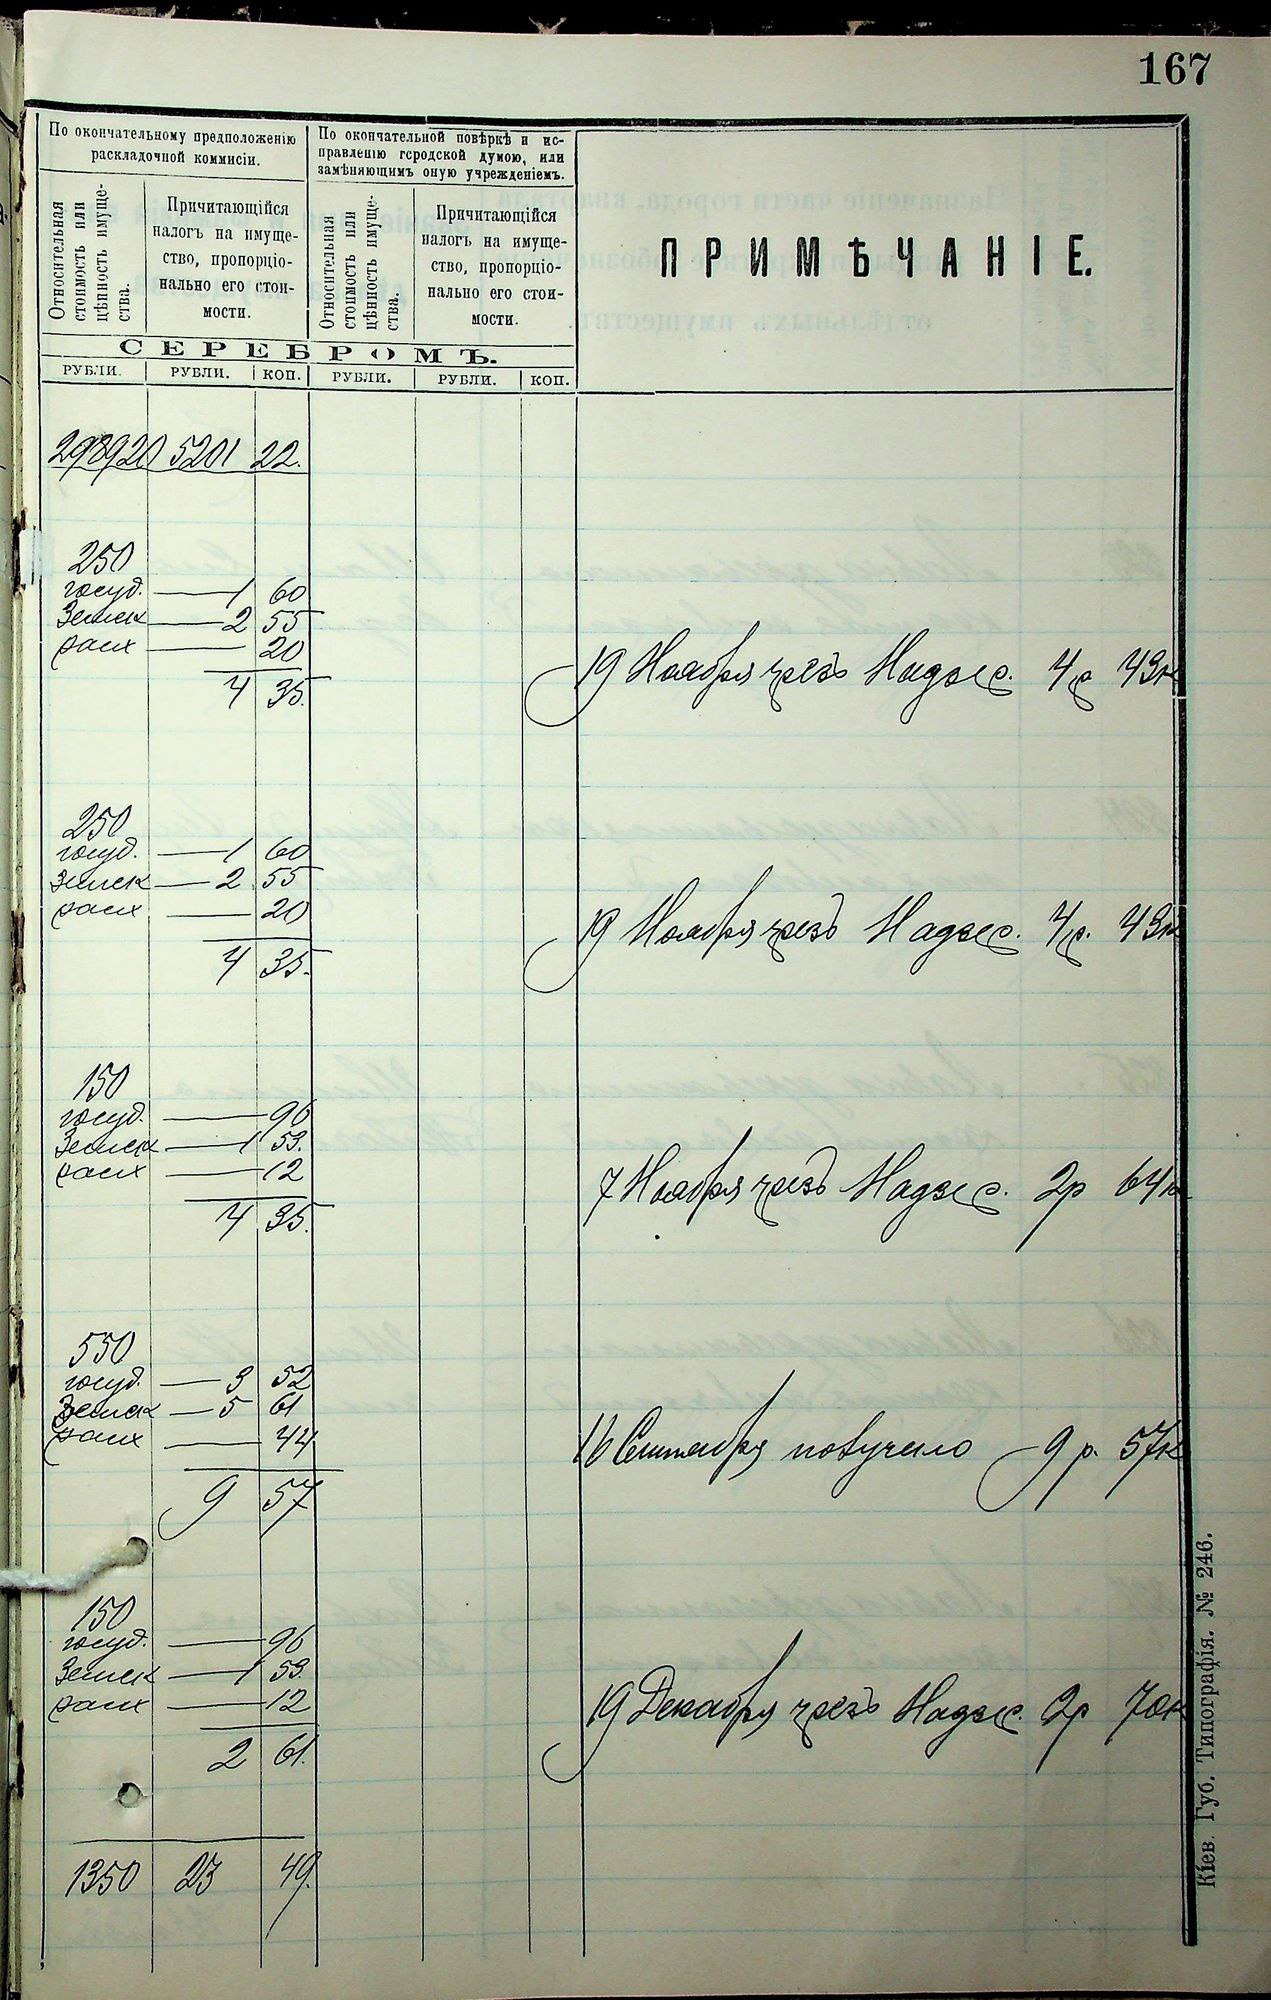 167
По окончательному предположенію
раскладочной коммисіи.
По окончательной повѣркѣ и ис-
правленію городской думою, или
замѣняющимъ оную учрежденіемъ.
Относительная
стоимость или
цѣнность имуще-
ства.
Причитающійся
налогъ на имуще-
ство, пропорціо-
нально его стои-
мости.
Относительная
стоимость или
цѣнность имуще-
ства.
Причитающійся
налогъ на имуще-
ство, пропорціо-
нально его стои-
мости.
ПРИМѢЧАНІЕ.
СЕРЕБРОМЪ.
РУБЛИ. РУБЛИ. КОП. РУБЛИ. РУБЛИ. КОП.
298920 5201 22.
250
госуд. — 1 60
Земск — 2 55
расх — 20
4 35.
19 Ноября чрезъ Надзер. 4р 43к
250
госуд. — 1 60
Земск — 2 55
расх — 20
4 35.
19 Ноября чрезъ Надзер. 4р. 43к
150
госуд. — 96
Земск — 1 53.
расх — 12
4 35.
7 Ноября чрезъ Надзер. 2р 64к
550
госуд. — 3 52
Земск — 5 61
расх — 44
9 57
16 Сентября 9 р. 57к
150
госуд. — 96
Земск — 1 53.
расх — 12
2 61.
19 Декабря чрезъ Надзер. 2р 70к
1350 23 49.
Кіев. Губ. Типографія. № 246.